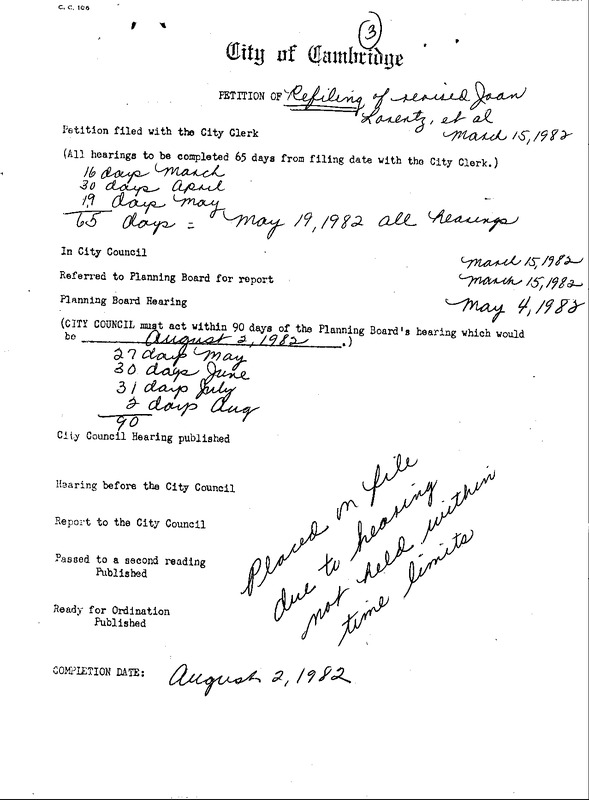 C. C. 106
3
City of Cambridge
PETITION OF Refiling of revised Joan
Lorentz, et al
Petition filed with the City Clerk March 15, 1982
(All hearings to be completed 65 days from filing date with the City Clerk.)
16 days March
30 days April
19 days May
65 days = May 19, 1982 all hearings
In City Council March 15, 1982
Referred to Planning Board for report March 15, 1982
Planning Board Hearing May 4, 1982
(CITY COUNCIL must act within 90 days of the Planning Board's hearing which would
be August 2, 1982.)
27 days May
30 days June
31 days July
2 days Aug
90
City Council Hearing published
Hearing before the City Council
Report to the City Council
Passed to a second reading
Published
Ready for Ordination
Published
Placed on file
due to hearing
not held within
time limits
COMPLETION DATE: August 2, 1982